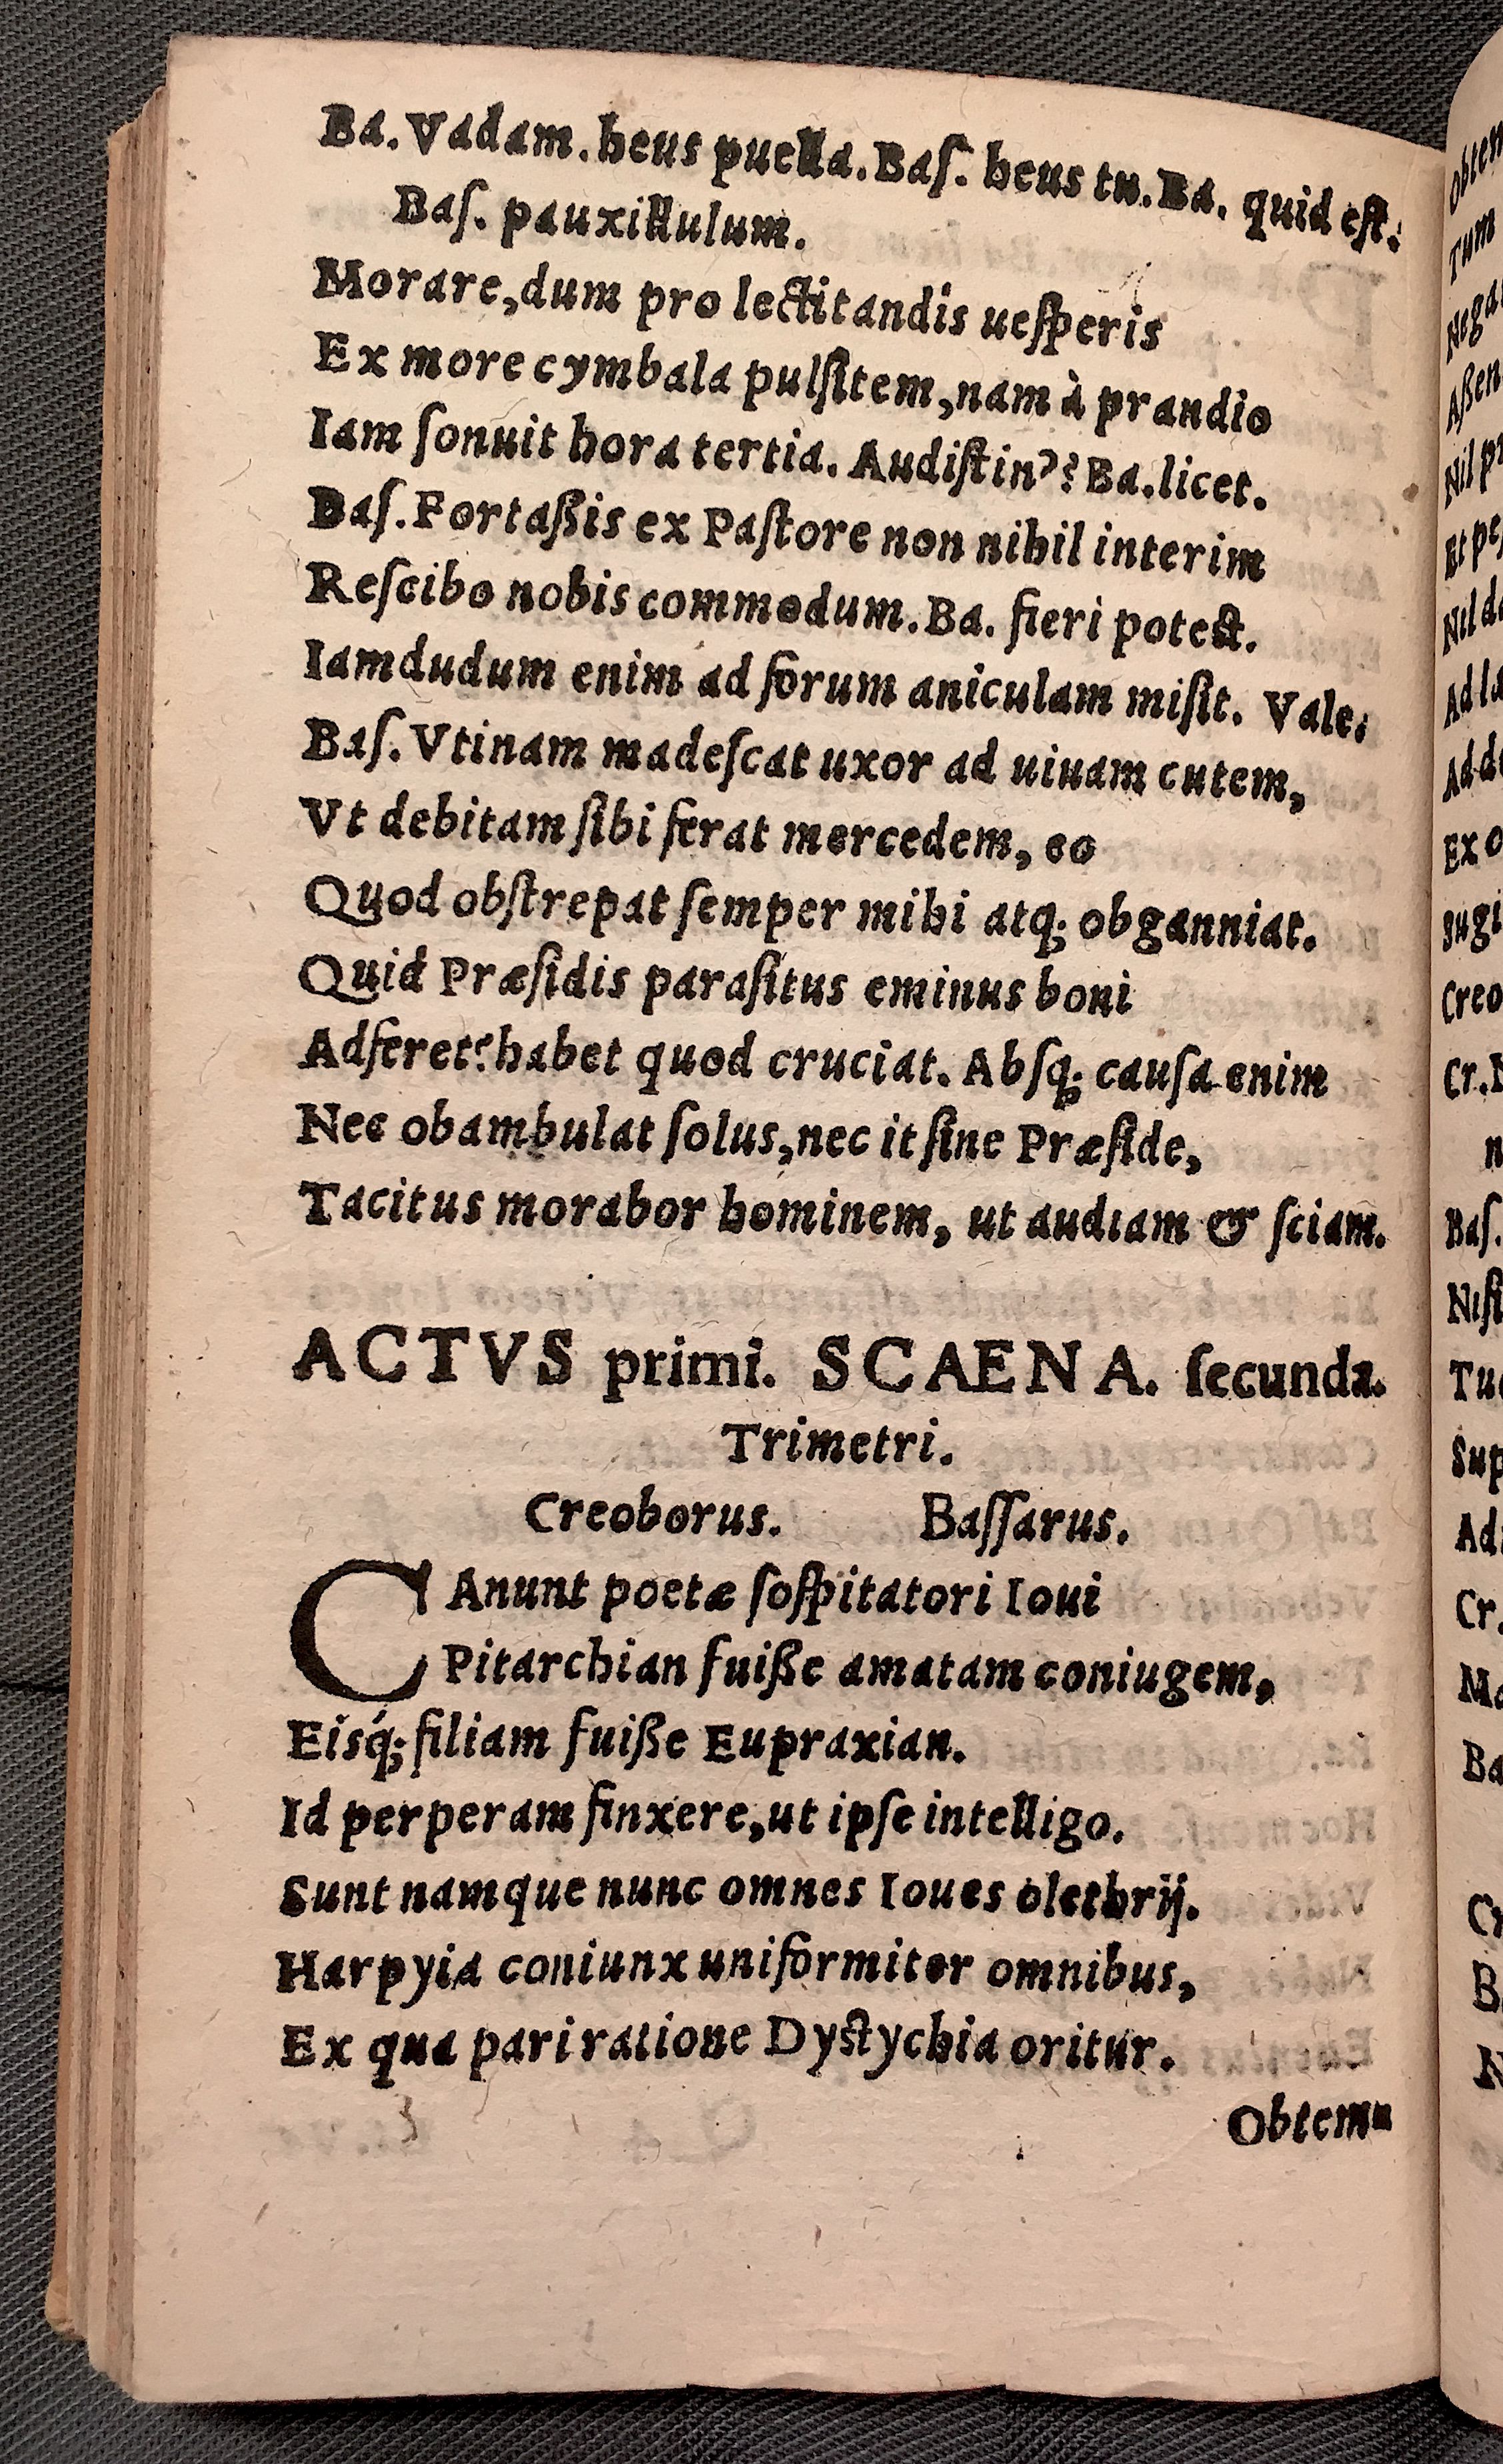 Ba. Vadam. heus puella. Baſ. heus tu. Ba. quid eſt?
Baſ. pauxillulum.
Morare, dum pro lectitandis ueſperis
Ex more cymbala pulſitem, nam à prandio
Iam ſonuit hora tertia. Audiſtin'? Ba. licet.
Baſ. Fortaßis ex Paſtore non nihil interim
Reſcibo nobis commodum. Ba. fieri poteſt.
Iamdudum enim ad forum aniculam miſit. Vale.
Baſ. Vtinam madeſcat uxor ad uiuam cutem,
Vt debitam ſibi ferat mercedem, eo
Quod obſtrepat ſemper mihi atq; obganniat.
Quid Præſidis paraſitus eminus boni
Adferet? habet quod cruciat. Abſq; cauſa enim
Nec obambulat ſolus, nec it ſine Præſide,
Tacitus morabor hominem, ut audiam & ſciam.
ACTVS primi. SCAENA. ſecunda.
Trimetri.
Creoborus. Baſſarus.
CAnunt poetæ ſoſpitatori Ioui
Pitarchian fuiße amatam coniugem,
Eisq́; filiam fuiße Eupraxian.
Id perperam finxere, ut ipſe intelligo.
Sunt namque nunc omnes Ioues olethrij.
Harpyia coniunx uniformiter omnibus,
Ex qua pari ratione Dyſtychia oritur.
Obtem-
Obtem
Tum
Nega
Aßen
Nil pr
Et peſ
Nil da
Ad la
Ad de
Ex o
Sugi
Creo
Cr. N
n
Baſ.
Niſi
Tuo
Sup
Ad
Cr.
Ma
Ba
Cr
B
N